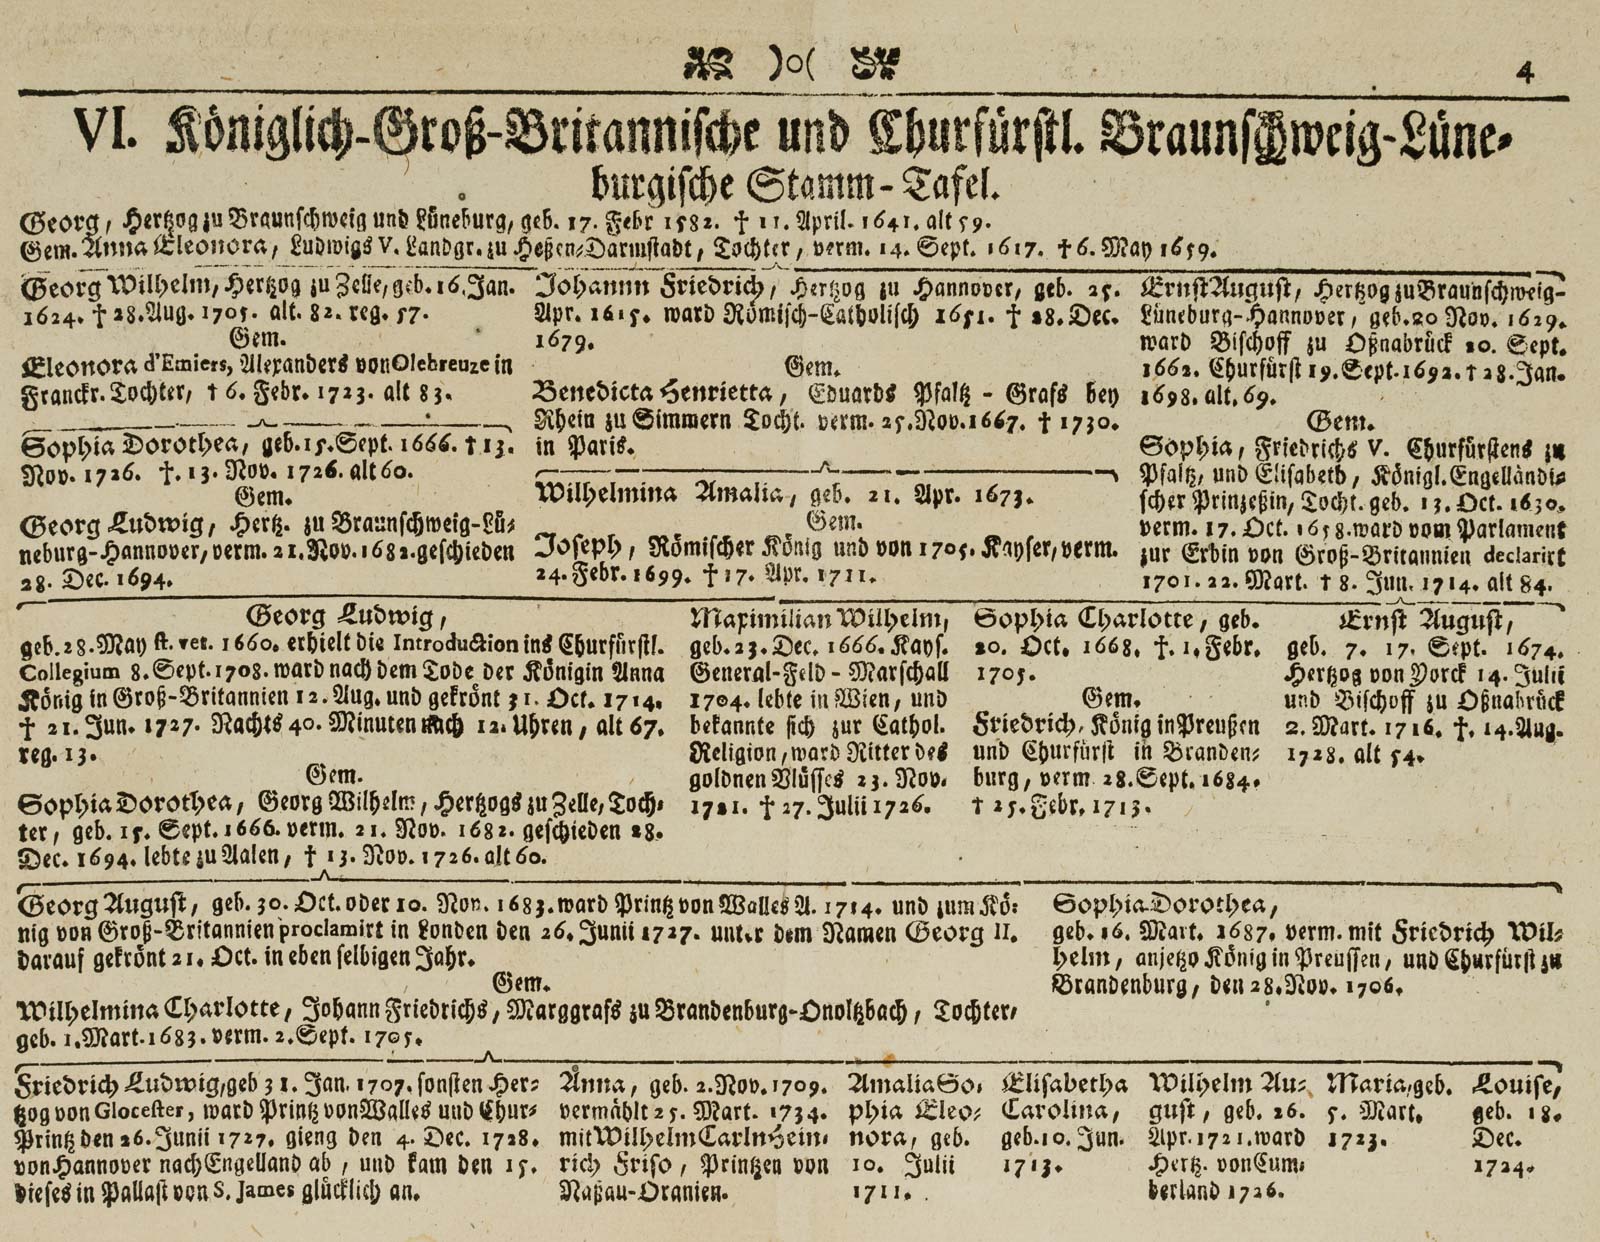 )o(
4
VI. Königlich-Groß-Britannische und Churfürstl. Braunschweig-Lüne-
burgische Stamm-Tafel.
Georg, Hertzog zu Braunschweig und Lüneburg, geb. 17. Febr 1582. † 11. April. 1641. alt 59.
Gem. Anna Eleonora, Ludwigs V. Landgr. zu Heßen-Darmstadt, Tochter, verm. 14. Sept. 1617. † 6. May 1659.
Georg Wilhelm, Hertzog zu Zelle, geb. 16. Jan.
1624. † 28. Aug. 1705. alt. 82. reg. 57.
Gem.
Eleonora d'Emiers, Alexanders von Olebreuze in
Franckr. Tochter, † 6. Febr. 1723. alt 83.
Sophia Dorothea, geb. 15. Sept. 1666. † 13.
Nov. 1726. †. 13. Nov. 1726. alt 60.
Gem.
Georg Ludwig, Hertz. zu Braunschweig-Lü-
neburg-Hannover, verm. 21. Nov. 1682. geschieden
28. Dec. 1694.
Johann Friedrich, Hertzog zu Hannover, geb. 25.
Apr. 1615. ward Römisch-Catholisch 1651. † 28. Dec.
1679.
Gem.
Benedicta Henrietta, Eduards Pfaltz-Grafs bey
Rhein zu Simmern Tocht. verm. 25. Nov. 1667. † 1730.
in Paris.
Wilhelmina Amalia, geb. 21. Apr. 1673.
Gem.
Joseph, Römischer König und von 1705. Kayser, verm.
24. Febr. 1699. † 17. Apr. 1711.
Ernst August, Hertzog zu Braunschweig-
Lüneburg-Hannover, geb. 20 Nov. 1629.
ward Bischoff zu Oßnabrück 20. Sept.
1662. Churfürst 19. Sept. 1692. † 28. Jan.
1698. alt. 69.
Gem.
Sophia, Friedrichs V. Churfürstens zu
Pfaltz, und Elisabeth, Königl. Engelländi-
scher Prinzeßin, Tocht. geb. 13. Oct. 1630.
verm. 17. Oct. 1658. ward vom Parlament
zur Erbin von Groß-Britannien declarirt
1701. 22. Mart. † 8. Jun. 1714. alt 84.
Georg Ludwig,
geb. 28. May st. vet. 1660. erhielt die Introduction ins Churfürstl.
Collegium 8. Sept. 1708. ward nach dem Tode der Königin Anna
König in Groß-Britannien 12. Aug. und gekrönt 31. Oct. 1714.
† 21. Jun. 1727. Nachts 40. Minuten nach 12. Uhren, alt 67.
reg. 13.
Gem.
Sophia Dorothea, Georg Wilhelm, Hertzogs zu Zelle, Toch-
ter, geb. 15. Sept. 1666. verm. 21. Nov. 1682. geschieden 28.
Dec. 1694. lebte zu Aalen, † 13. Nov. 1726. alt 60.
Maximilian Wilhelm,
geb. 23. Dec. 1666. Kays.
General-Feld-Marschall
1704. lebte in Wien, und
bekannte sich zur Cathol.
Religion, ward Ritter des
goldnen Vlüsses 23. Nov.
1721. † 27. Julii 1726.
Sophia Charlotte, geb.
20. Oct. 1668. †. 1. Febr.
1705.
Gem.
Friedrich, König in Preußen
und Churfürst in Branden-
burg, verm. 28. Sept. 1684.
† 25. Febr. 1713.
Ernst August,
geb. 7. 17. Sept. 1674.
Hertzog von Yorck 14. Julii
und Bischoff zu Oßnabrück
2. Mart. 1716. †. 14. Aug.
1728. alt 54.
Georg August, geb. 30. Oct. oder 10. Nov. 1683. ward Printz von Walles A. 1714. und zum Kö-
nig von Groß-Britannien proclamirt in Londen den 26. Junii 1727. unter dem Namen Georg II.
darauf gekrönt 21. Oct. in eben selbigen Jahr.
Gem.
Wilhelmina Charlotte, Johann Friedrichs, Marggrafs zu Brandenburg-Onoltzbach, Tochter,
geb. 1. Mart. 1683. verm. 2. Sept. 1705.
Sophia Dorothea,
geb. 16. Mart. 1687. verm. mit Friedrich Wil-
helm, anjetzo König in Preussen, und Churfürst zu
Brandenburg, den 28. Nov. 1706.
Friedrich Ludwig, geb 31. Jan. 1707. sonsten Her-
tzog von Glocester, ward Printz von Walles und Chur-
Printz den 26. Junii 1727. gieng den 4. Dec. 1728.
von Hannover nach Engelland ab, und kam den 15.
dieses in Pallast von S. James glücklich an.
Anna, geb. 2. Nov. 1709.
vermählt 25. Mart. 1734.
mit Wilhelm Carln Hein-
rich Friso, Printzen von
Naßau-Oranien.
Amalia So-
phia Eleo-
nora, geb.
10. Julii
1711.
Elisabetha
Carolina,
geb. 10. Jun.
1713.
Wilhelm Au-
gust, geb. 26.
Apr. 1721. ward
Hertz. von Cum-
berland 1726.
Maria, geb.
5. Mart.
1723.
Louise,
geb. 18.
Dec.
1724.